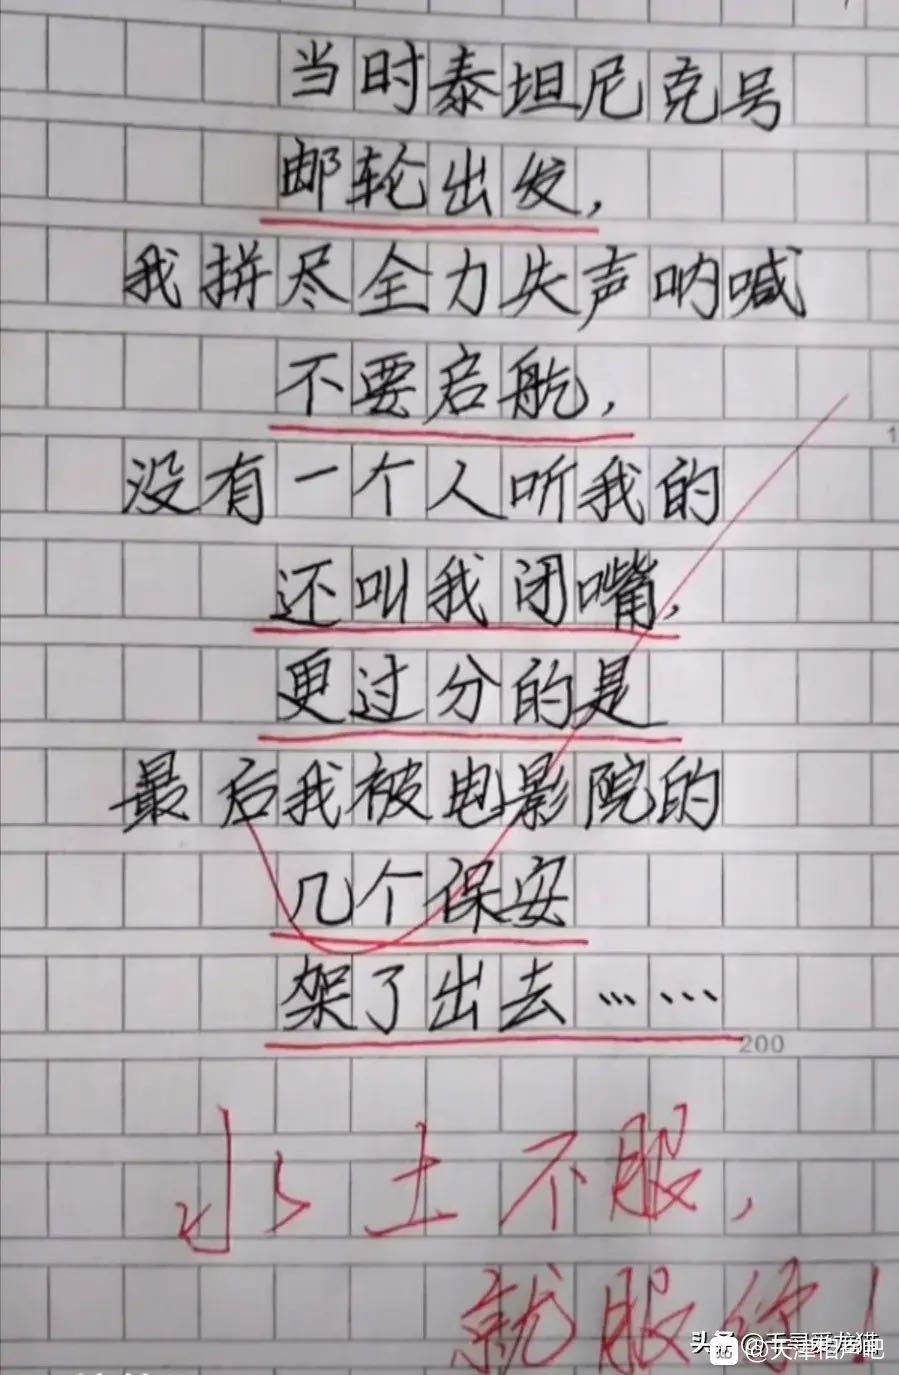 当时泰坦尼克号
邮轮出发，
我拼尽全力失声呐喊
不要启航，
没有一个人听我的
还叫我闭嘴，
更过分的是
最后我被电影院的
几个保安
架了出去……
200
水土不服，
就服你！
头条 @千寻爱龙猫
贴 @天津相声吧